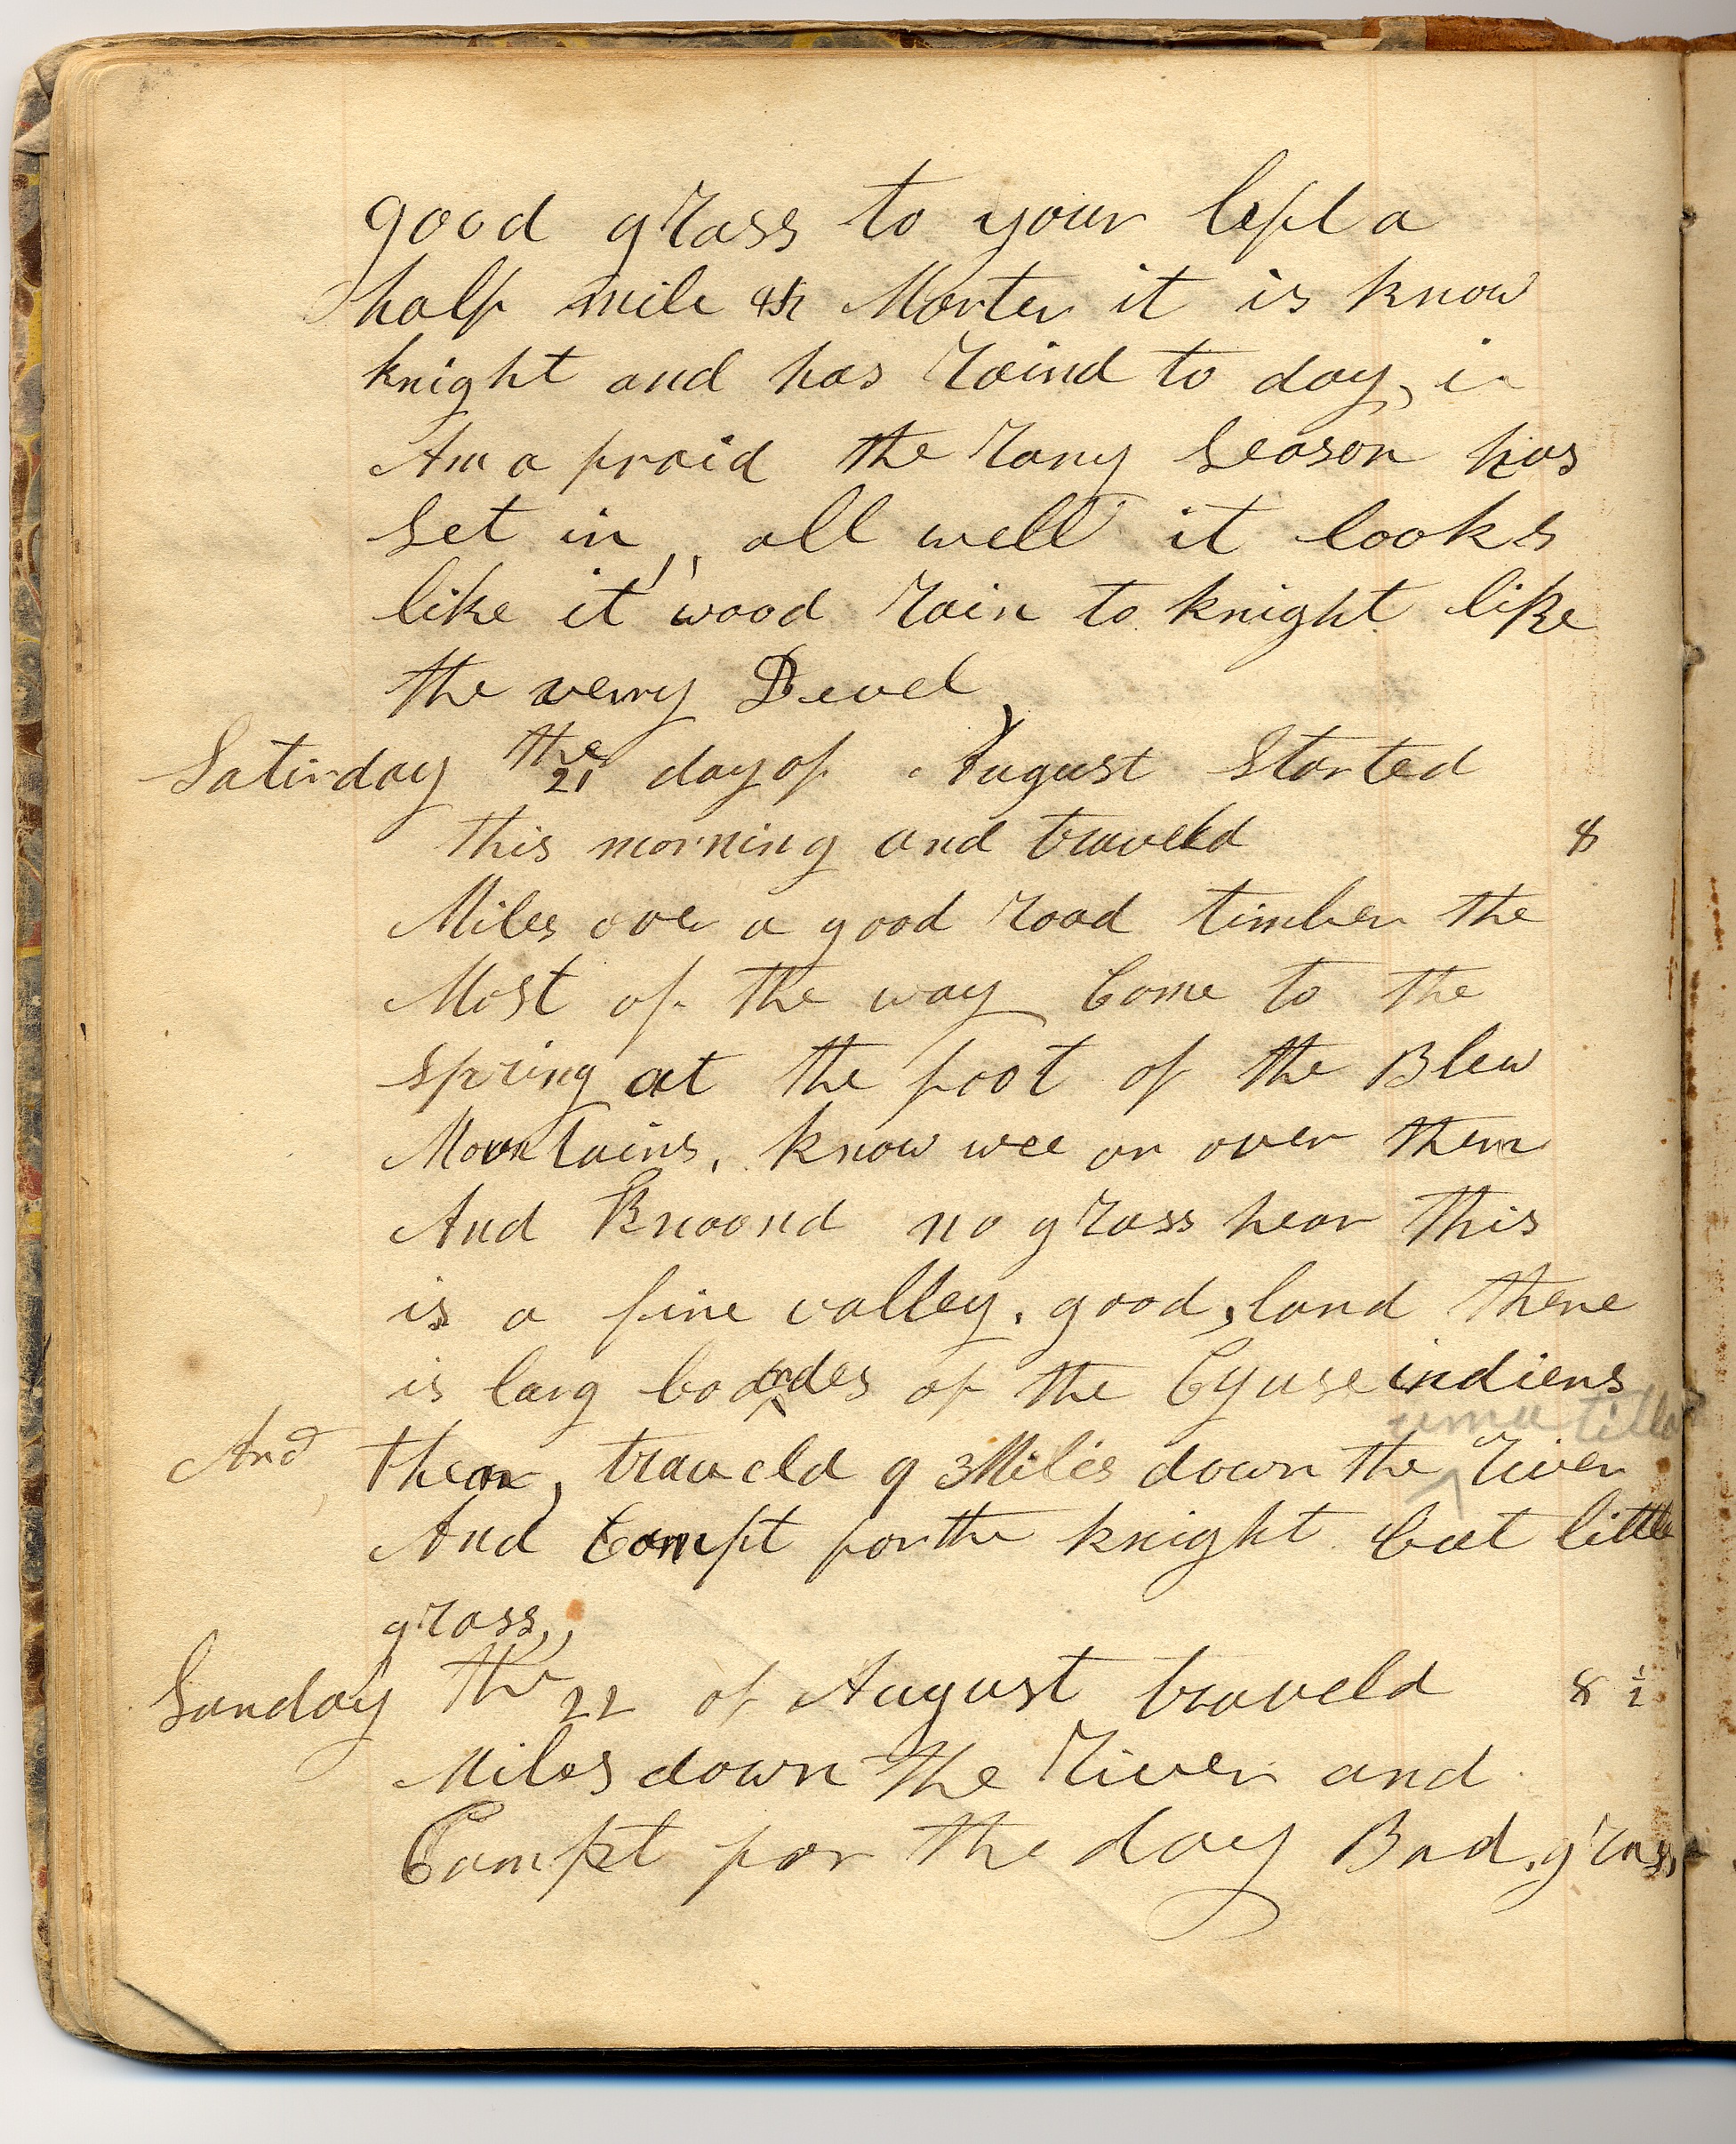 good grass to your left a
half mile & Morter it is know
knight and has raind to day, i
Am a fraid the rany Season has
Set in,, all well it looks
like it wood rain to knight like
the verry Devel
Saturday the 21 day of August Started
this morning and traveld 8
Miles over a good road timber the
Most of the way Come to the
Spring at the foot of the Blew
Mountains, know wee ar over them
And no grass hear this
is a fine valley. good, land there
is larg of the Cyuse indiens
umatilla
And then, traveld 9 3 Miles down the ^ river
And Campt for the knight but little
grass,,
Sunday the 22 of August traveld 8 1/2
Miles down the river and
Campt for the day Bad, grass,